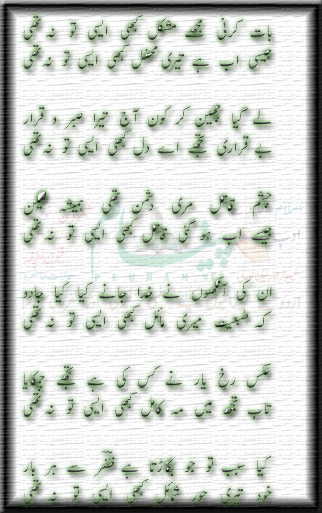 بات کرنی مجھے مشکل کبھی ایسی تو نہ تھی
جیسی اب ہے تیری محفل کبھی ایسی تو نہ تھی
لے گیا چھین کر کون آج تیرا صبر و قرار
بے قراری تجھے اے دل کبھی ایسی تو نہ تھی
چشم قاتل مری دشمن تھی ہمیشہ لیکن
جیسے اب ہو گئی قاتل کبھی ایسی تو نہ تھی
ان کی آنکھوں نے خدا جانے کیا کیا جادو
کہ طبیعت میری مائل کبھی ایسی تو نہ تھی
عکس رخ یار نے کس کی ہے تجھے چمکایا
تاب تجھ میں مہ کامل کبھی ایسی تو نہ تھی
کیا سبب تو جو بگڑتا ہے ظفر سے ہر بار
خود تیری حور شمائل کبھی ایسی تو نہ تھی